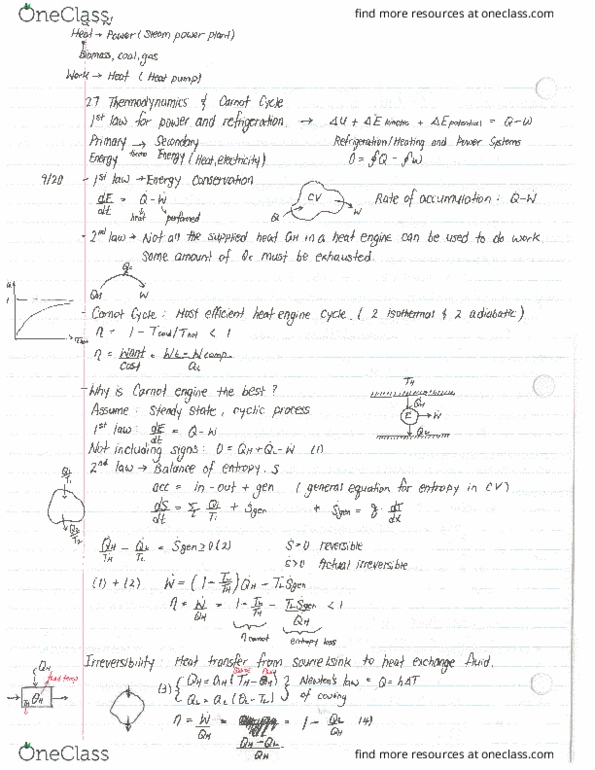 OneClass
find more resources at oneclass.com
Heat → Power (Steam power plant)
Biomass, coal, gas
Work → Heat (Heat pump)
27 Thermodynamics & Carnot Cycle
1st law for power and refrigeration → ΔU + ΔE kinetic + ΔE potential = Q - W
Primary → Secondary
Refrigeration/Heating and Power Systems
Energy Energy (Heat, electricity)
0 = ∮Q - ∮W
9/20 - 1st law → Energy Conservation
dE/dt = Q̇ - Ẇ
heat performed
CV
Q
W
Rate of accumulation: Q̇ - Ẇ
- 2nd law → Not all the supplied heat QH in a heat engine can be used to do work
Some amount of Qc must be exhausted.
QH W
- Carnot Cycle: Most efficient heat engine cycle. (2 isothermal & 2 adiabatic)
η = 1 - Tcold/Thot < 1
η = Want/Cost = Wt - Wcomp/
- Why is Carnot engine the best?
Assume: Steady state, cyclic process
1st law: dE/dt = Q - W
TH
Q̇H
E → Ẇ
Q̇L
Not including signs: 0 = Q̇H + Q̇L - Ẇ (1)
2nd law → Balance of entropy, S
acc = in - out + gen (general equation for entropy in CV)
dS/dt = Σ Q̇i/Ti + Ṡgen
Q̇H/TH - Q̇L/TL = Ṡgen ≥ 0 (2)
Ṡ = 0 reversible
Ṡ > 0 Actual irreversible
(1) + (2) Ẇ = (1 - TL/TH) Q̇H - TL Ṡgen
η = Ẇ/Q̇H = 1 - TL/TH - TL Ṡgen/Q̇H < 1
η carnot entropy loss
Irreversibility: Heat transfer from source & sink to heat exchange fluid.
QH
fluid temp
TH θH
(3) { Q̇H = aH (TH - θH) } Newton's law = Q = hAT
Q̇L = aL (θL - TL) of cooling
η = W/QH = = 1 - QL/QH (4)
QH - QL/QH
OneClass
find more resources at oneclass.com